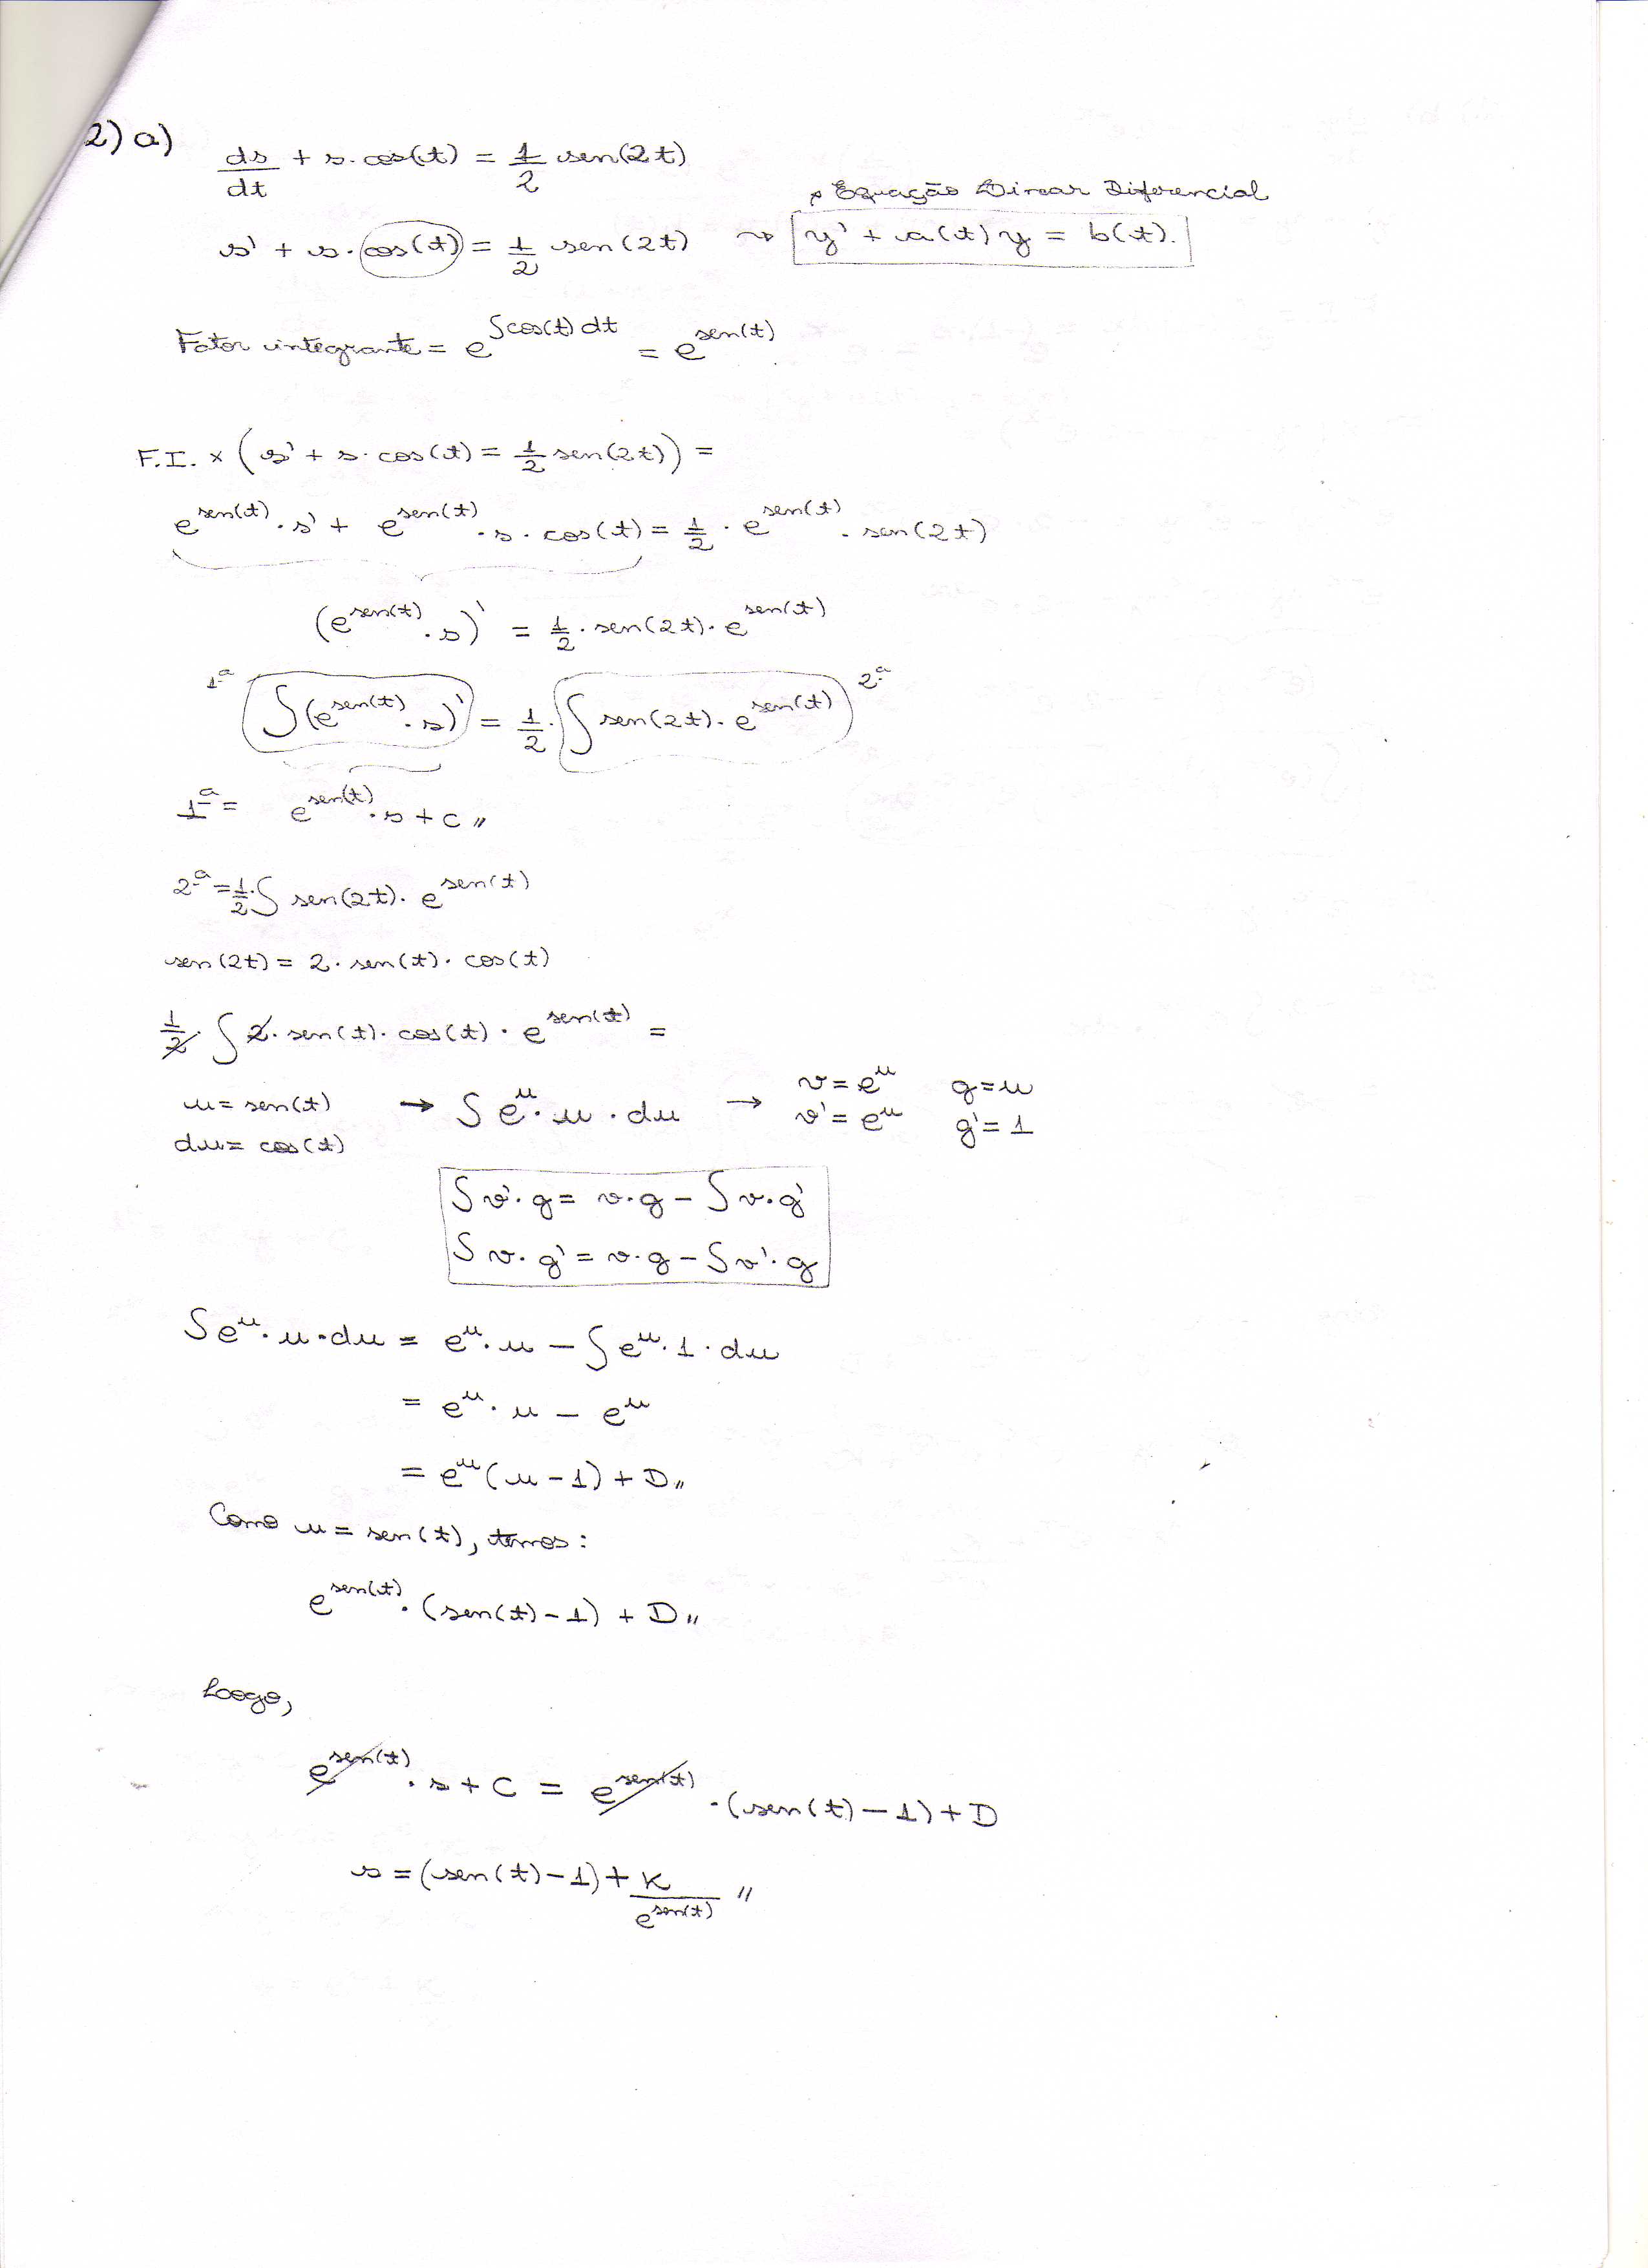 2) a)
ds/dt + s · cos(t) = 1/2 sen(2t)
→ Equação Linear Diferencial
s' + s · cos(t) = 1/2 sen(2t) ⇝ y' + a(t) y = b(t).
Fator integrante = e^(∫cos(t) dt) = e^(sen(t))
F.I. × (s' + s · cos(t) = 1/2 sen(2t)) =
e^(sen(t)) · s' + e^(sen(t)) · s · cos(t) = 1/2 · e^(sen(t)) · sen(2t)
(e^(sen(t)) · s)' = 1/2 · sen(2t) · e^(sen(t))
1ª ∫(e^(sen(t)) · s)' = 1/2 · ∫ sen(2t) · e^(sen(t)) 2ª
1ª = e^(sen(t)) · s + c //
2ª = 1/2 · ∫ sen(2t) · e^(sen(t))
sen(2t) = 2 · sen(t) · cos(t)
1/2 · ∫ 2 · sen(t) · cos(t) · e^(sen(t)) =
u = sen(t) → ∫ e^u · u · du → v = e^u g = u
du = cos(t) v' = e^u g' = 1
∫ v' · g = v · g − ∫ v · g'
∫ v · g' = v · g − ∫ v' · g
∫ e^u · u · du = e^u · u − ∫ e^u · 1 · du
= e^u · u − e^u
= e^u (u − 1) + D //
Como u = sen(t), temos:
e^(sen(t)) · (sen(t) − 1) + D //
Logo,
e^(sen(t)) · s + C = e^(sen(t)) · (sen(t) − 1) + D
s = (sen(t) − 1) + K/e^(sen(t)) //